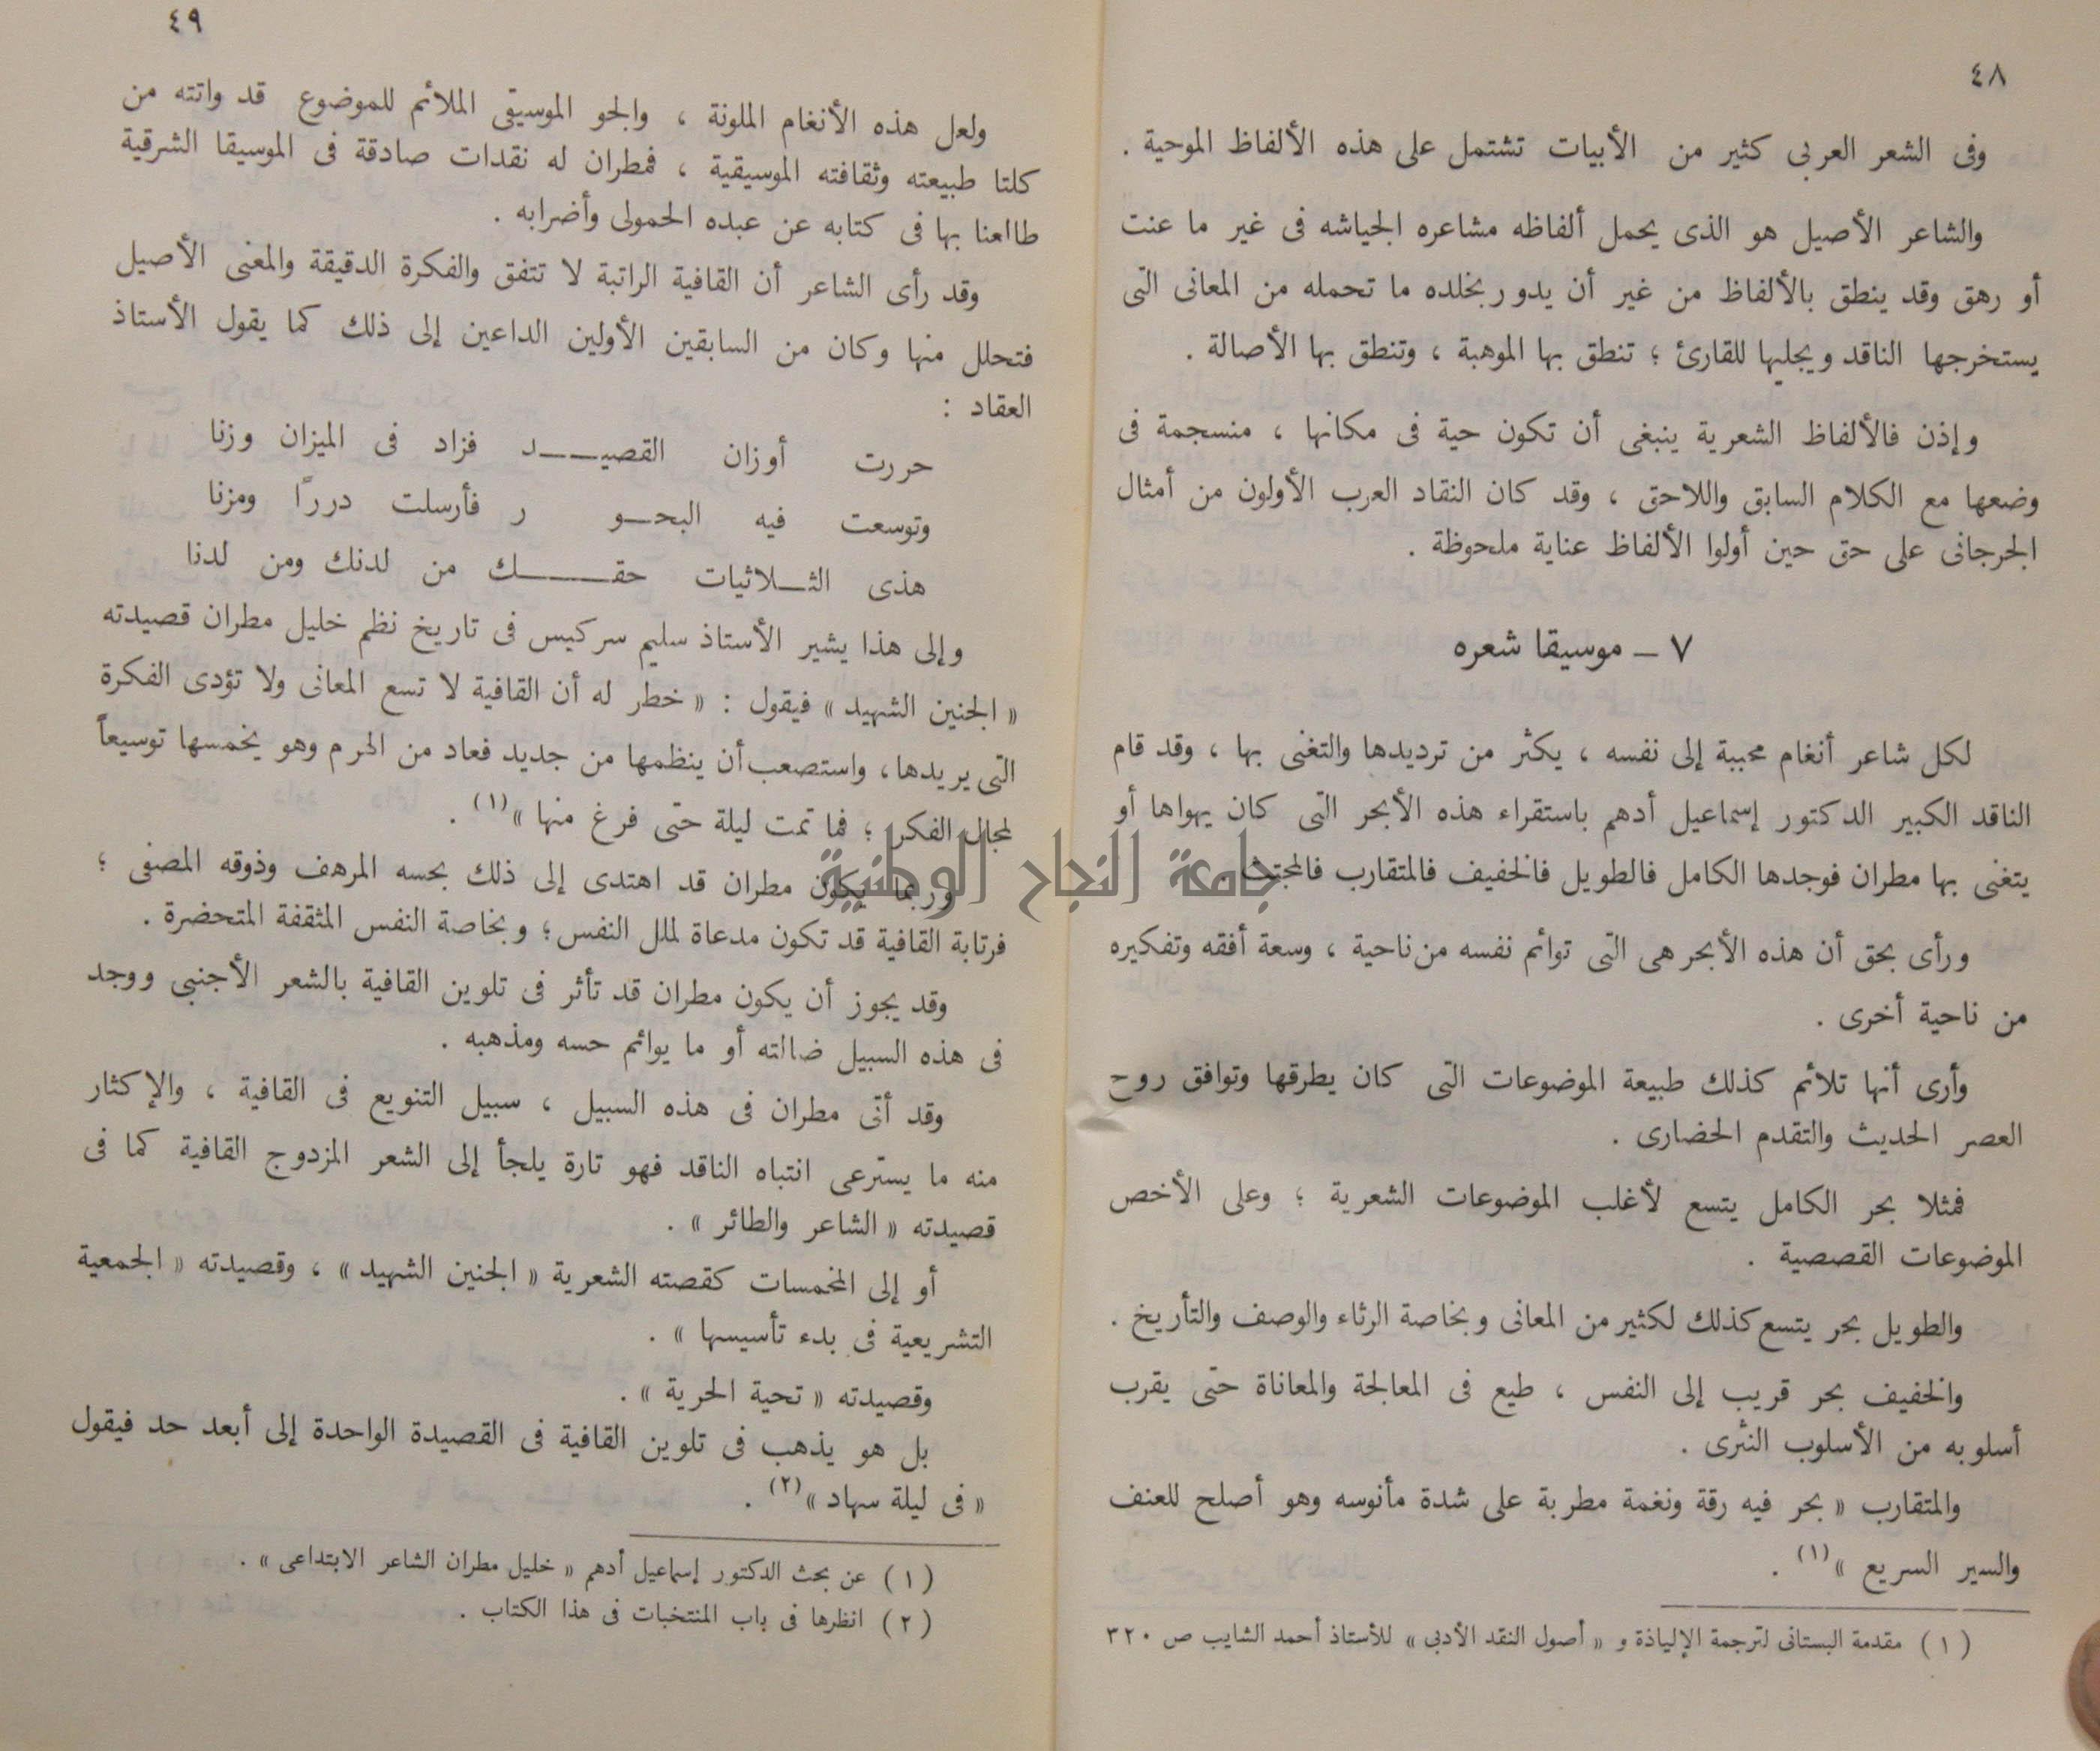 ٤٨
وفى الشعر العربى كثير من الأبيات تشتمل على هذه الألفاظ الموحية .
والشاعر الأصيل هو الذى يحمل ألفاظه مشاعره الجياشه فى غير ما عنت
أو رهق وقد ينطق بالألفاظ من غير أن يدور بخلده ما تحمله من المعانى التى
يستخرجها الناقد ويجليها للقارئ ؛ تنطق بها الموهبة ، وتنطق بها الأصالة .
وإذن فالألفاظ الشعرية ينبغى أن تكون حية فى مكانها ، منسجمة فى
وضعها مع الكلام السابق واللاحق ، وقد كان النقاد العرب الأولون من أمثال
الجرجانى على حق حين أولوا الألفاظ عناية ملحوظة .
٧ – موسيقا شعره
لكل شاعر أنغام محببة إلى نفسه ، يكثر من ترديدها والتغنى بها ، وقد قام
الناقد الكبير الدكتور إسماعيل أدهم باستقراء هذه الأبحر التى كان يهواها أو
يتغنى بها مطران فوجدها الكامل فالطويل فالخفيف فالمتقارب فالمجتث
ورأى بحق أن هذه الأبحر هى التى توائم نفسه من ناحية ، وسعة أفقه وتفكيره
من ناحية أخرى .
وأرى أنها تلائم كذلك طبيعة الموضوعات التى كان يطرقها وتوافق روح
العصر الحديث والتقدم الحضارى .
فمثلا بحر الكامل يتسع لأغلب الموضوعات الشعرية ؛ وعلى الأخص
الموضوعات القصصية .
والطويل بحر يتسع كذلك لكثير من المعانى وبخاصة الرثاء والوصف والتأريخ .
والخفيف بحر قريب إلى النفس ، طيع فى المعالجة والمعاناة حتى يقرب
أسلوبه من الأسلوب النثرى .
والمتقارب « بحر فيه رقة ونغمة مطربة على شدة مأنوسه وهو أصلح للعنف
والسير السريع »(١) .
(١) مقدمة البستانى لترجمة الإلياذة و « أصول النقد الأدبى » للأستاذ أحمد الشايب ص ٣٢٠
٤٩
ولعل هذه الأنغام الملونة ، والجو الموسيقى الملائم للموضوع قد واتته من
كلتا طبيعته وثقافته الموسيقية ، فمطران له نقدات صادقة فى الموسيقا الشرقية
طالعنا بها فى كتابه عن عبده الحمولى وأضرابه .
وقد رأى الشاعر أن القافية الراتبة لا تتفق والفكرة الدقيقة والمغنى الأصيل
فتحلل منها وكان من السابقين الأولين الداعين إلى ذلك كما يقول الأستاذ
العقاد :
حررت أوزان القصيـــد فزاد فى الميزان وزنا
وتوسعت فيه البحـو ر فأرسلت دررًا ومزنا
هذى الثـلاثيات حقـــك من لدنك ومن لدنا
وإلى هذا يشير الأستاذ سليم سركيس فى تاريخ نظم خليل مطران قصيدته
« الجنين الشهيد » فيقول : « خطر له أن القافية لا تسع المعانى ولا تؤدى الفكرة
التى يريدها ، واستصعب أن ينظمها من جديد فعاد من الهرم وهو يخمسها توسيعاً
لمجال الفكر ؛ فما تمت ليلة حتى فرغ منها »(١) .
وربما يكون مطران قد اهتدى إلى ذلك بحسه المرهف وذوقه المصفى ؛
فرتابة القافية قد تكون مدعاة لملل النفس ؛ وبخاصة النفس المثقفة المتحضرة .
وقد يجوز أن يكون مطران قد تأثر فى تلوين القافية بالشعر الأجنبى ووجد
فى هذه السبيل ضالته أو ما يوائم حسه ومذهبه .
وقد أتى مطران فى هذه السبيل ، سبيل التنويع فى القافية ، والإكثار
منه ما يسترعى انتباه الناقد فهو تارة يلجأ إلى الشعر المزدوج القافية كما فى
قصيدته « الشاعر والطائر » .
أو إلى المخمسات كقصته الشعرية « الجنين الشهيد » ، وقصيدته « الجمعية
التشريعية فى بدء تأسيسها » .
وقصيدته « تحية الحرية » .
بل هو يذهب فى تلوين القافية فى القصيدة الواحدة إلى أبعد حد فيقول
« فى ليلة سهاد »(٢) .
(١) عن بحث الدكتور إسماعيل أدهم « خليل مطران الشاعر الابتداعى » .
(٢) انظرها فى باب المنتخبات فى هذا الكتاب .
جامعة النجاح الوطنية